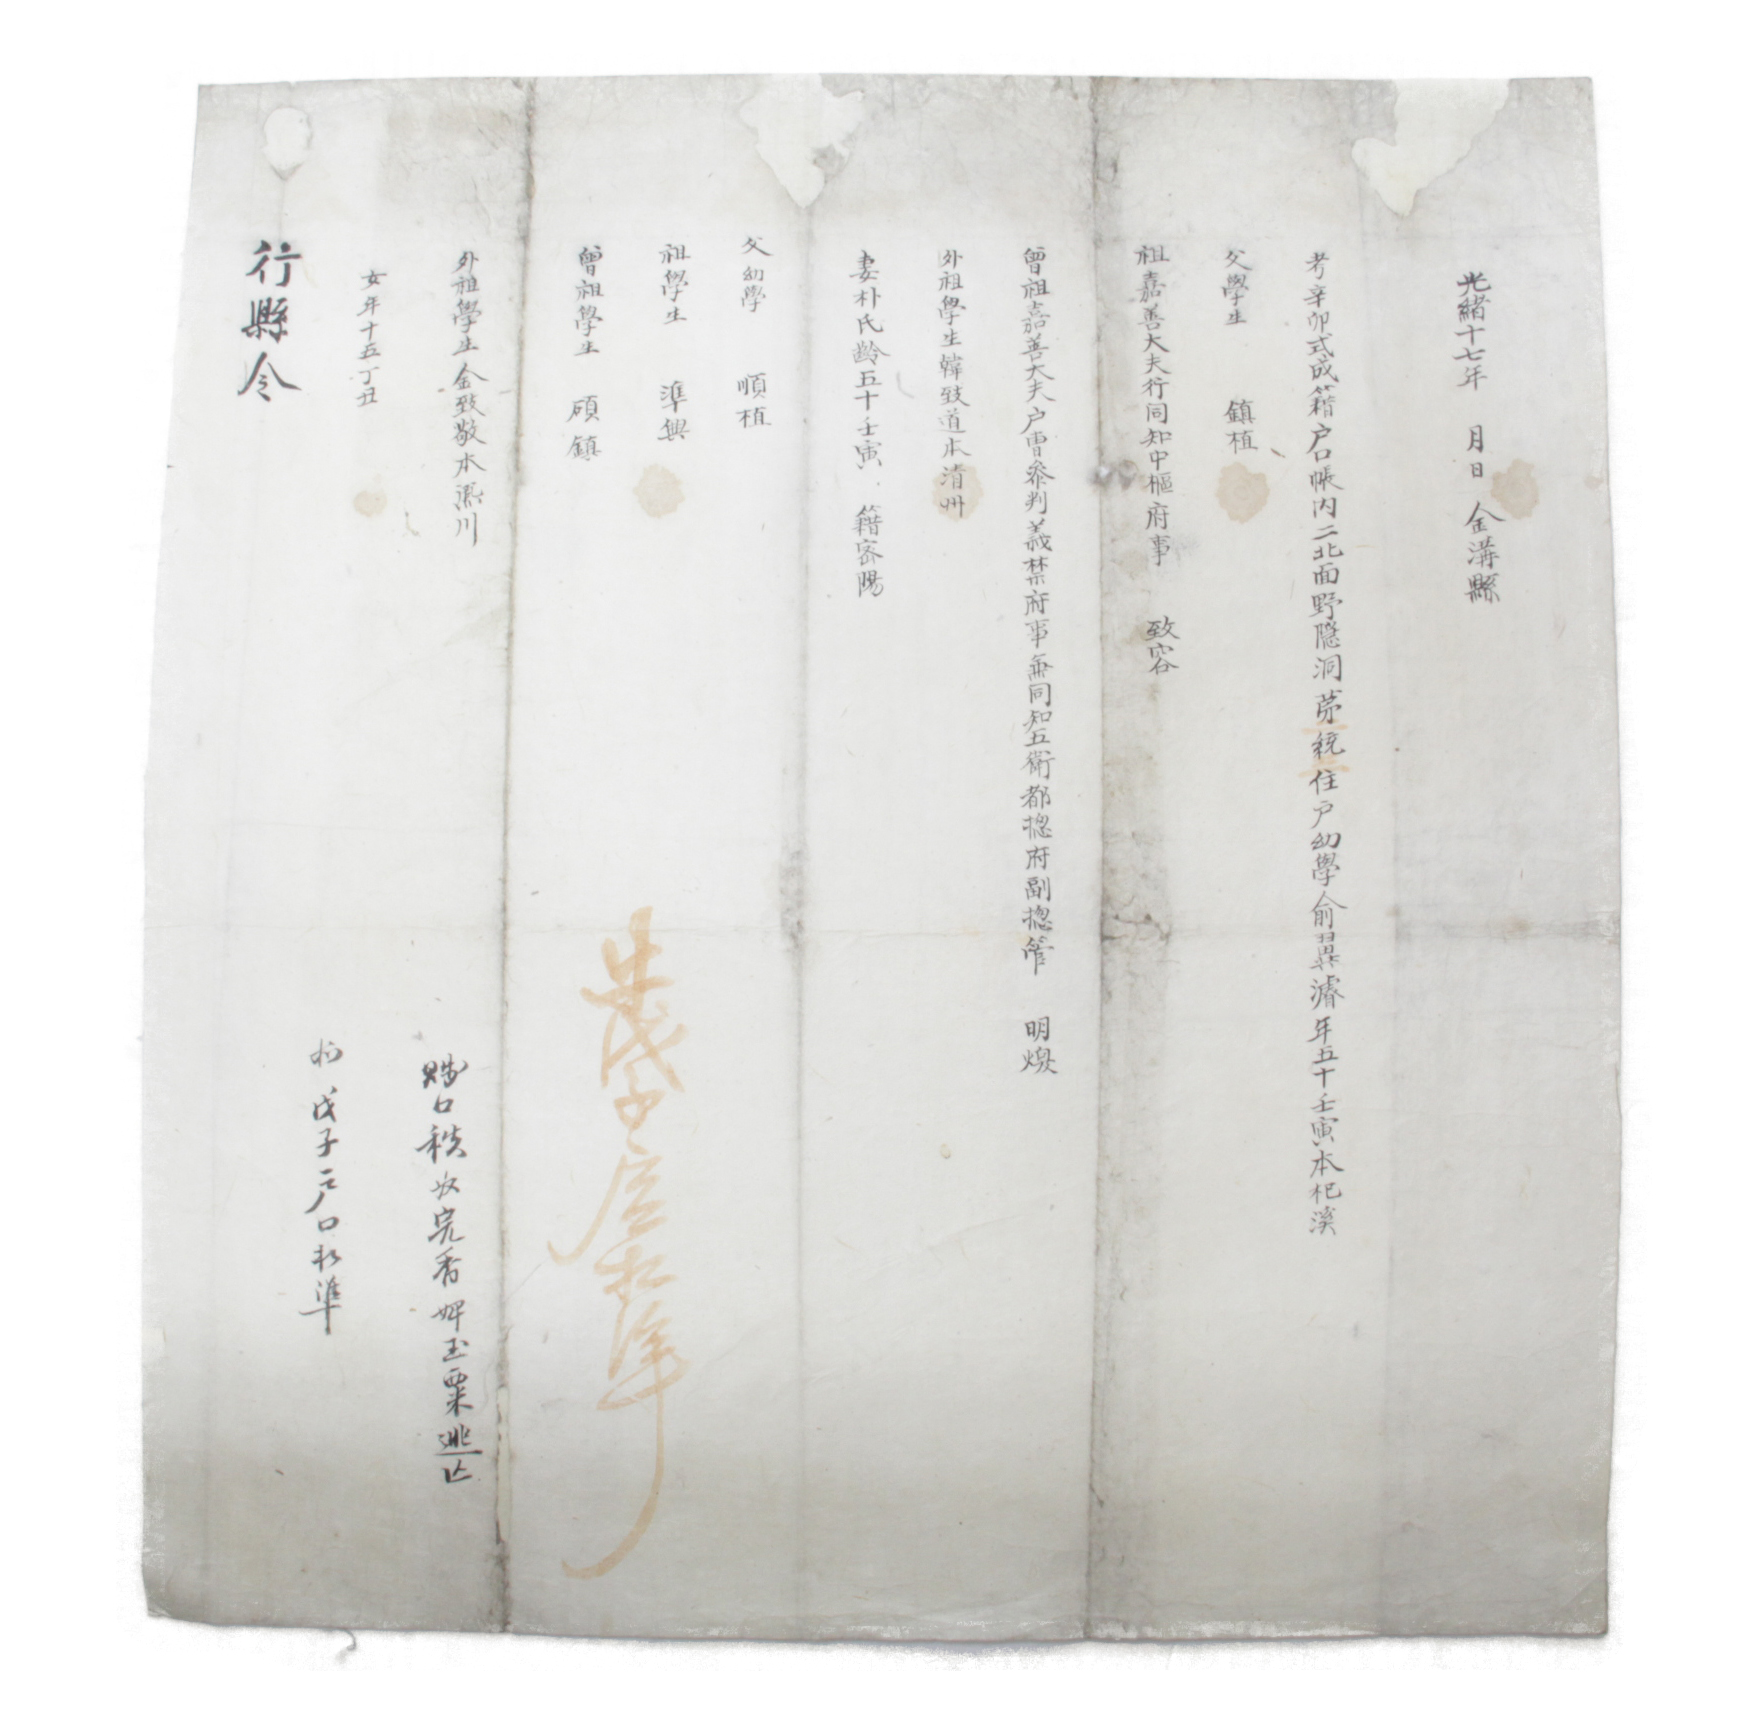 光緖十七年 月日 金溝縣
考辛卯式成籍户口帳內二北面野隱洞苐統住户幼學俞異濬年五十壬寅本杞溪
父學生 鎭植
祖嘉善大夫行同知中樞府事 致容
曾祖嘉善大夫户曺參判義禁府事兼同知五衛都摠府副摠管 明煥
外祖學生韓致道本淸州
妻朴氏齡五十壬寅 籍密陽
父幼學 順植
祖學生 準興
曾祖學生 碩鎭
外祖學生金致敬本
女年十五丁丑
賤口秩奴完香婢玉粟逃亡
戊子户口相準
行縣令
戊子